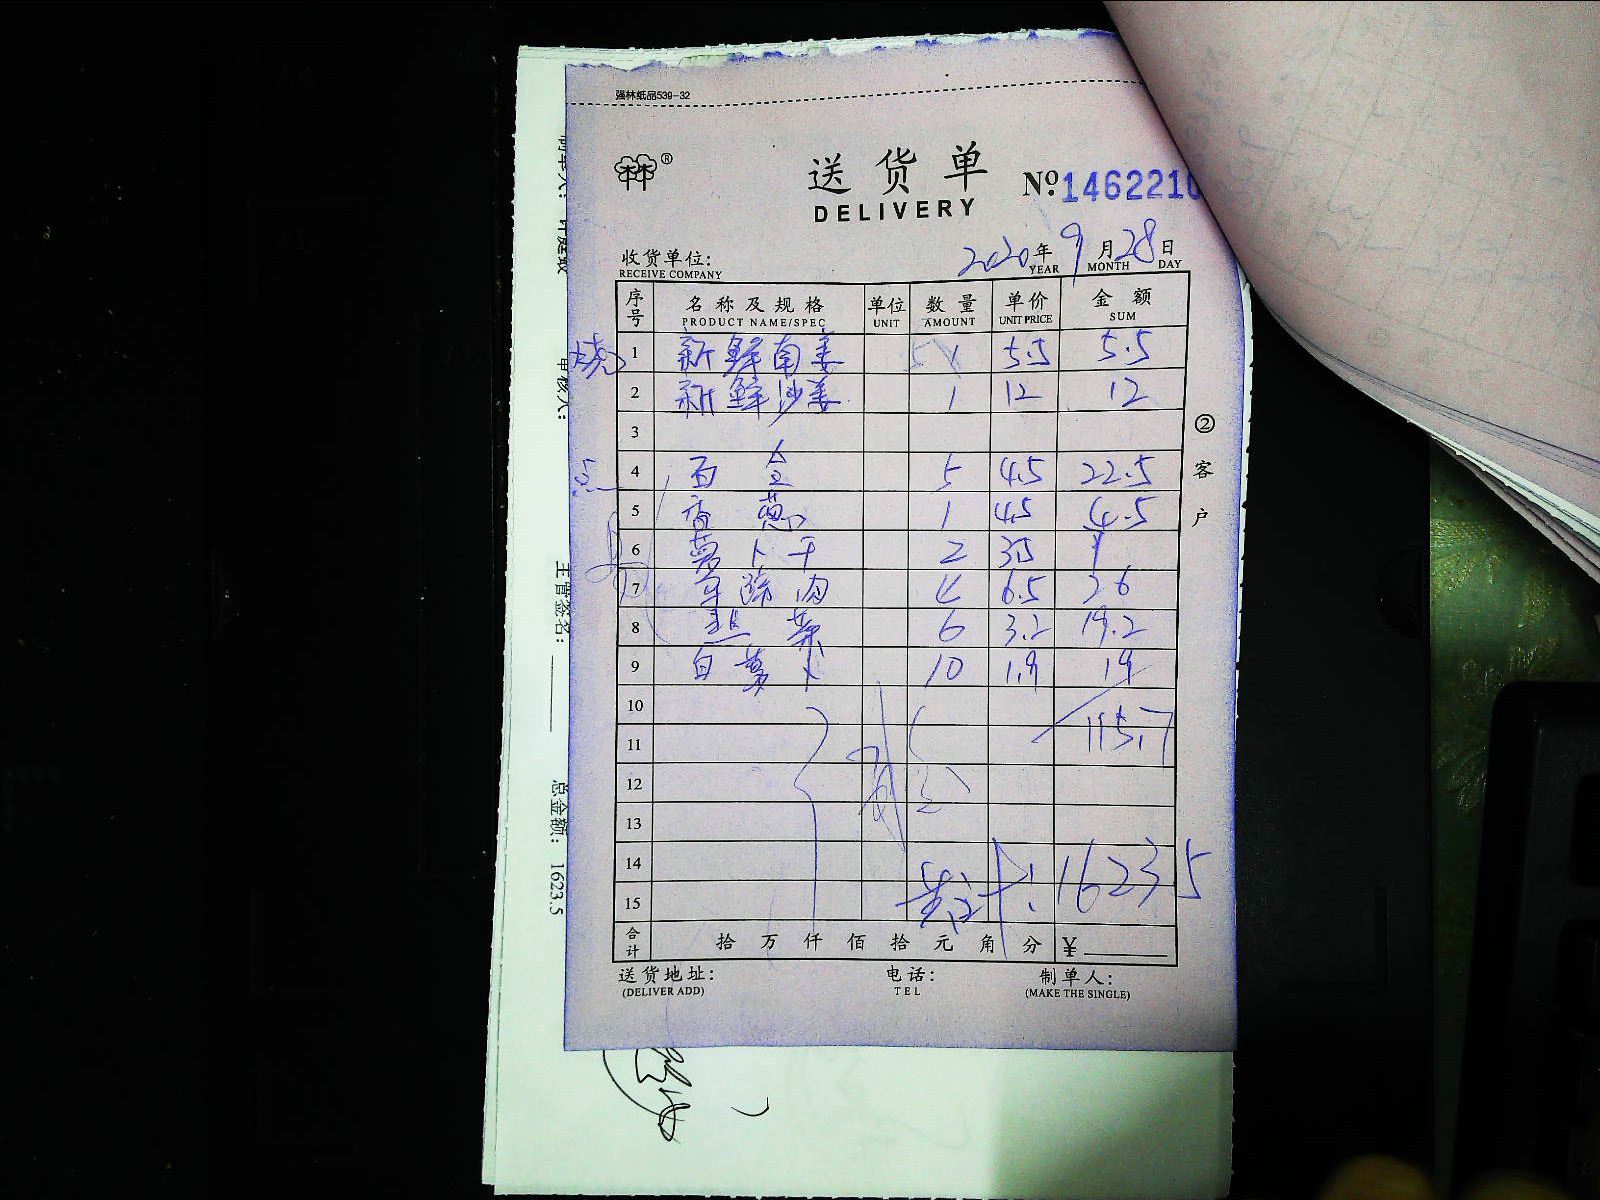 强林纸品539-32
林®
送货单 Nº.1462210
DELIVERY
收货单位: 2020年9月28日
RECEIVE COMPANY YEAR MONTH DAY
序号 名称及规格 单位 数量 单价 金额
PRODUCT NAME/SPEC UNIT AMOUNT UNIT PRICE SUM
烧 1 新鲜南姜 1 5.5 5.5
2 新鲜沙姜 1 12 12
3
点 4 5 4.5 22.5
5 香葱 1 4.5 4.5
6 萝卜干 2 3.5
7 4 6.5 26
8 韭菜 6 3.2 19.2
9 白萝卜 10 1.9 19
10 115.7
11
12
13
14
15 共计: 1623.5
合计 拾万仟佰拾元角分 ¥
送货地址: 电话: 制单人:
(DELIVER ADD) TEL (MAKE THE SINGLE)
②客户
审核人:
主管签名:
总金额: 1623.5